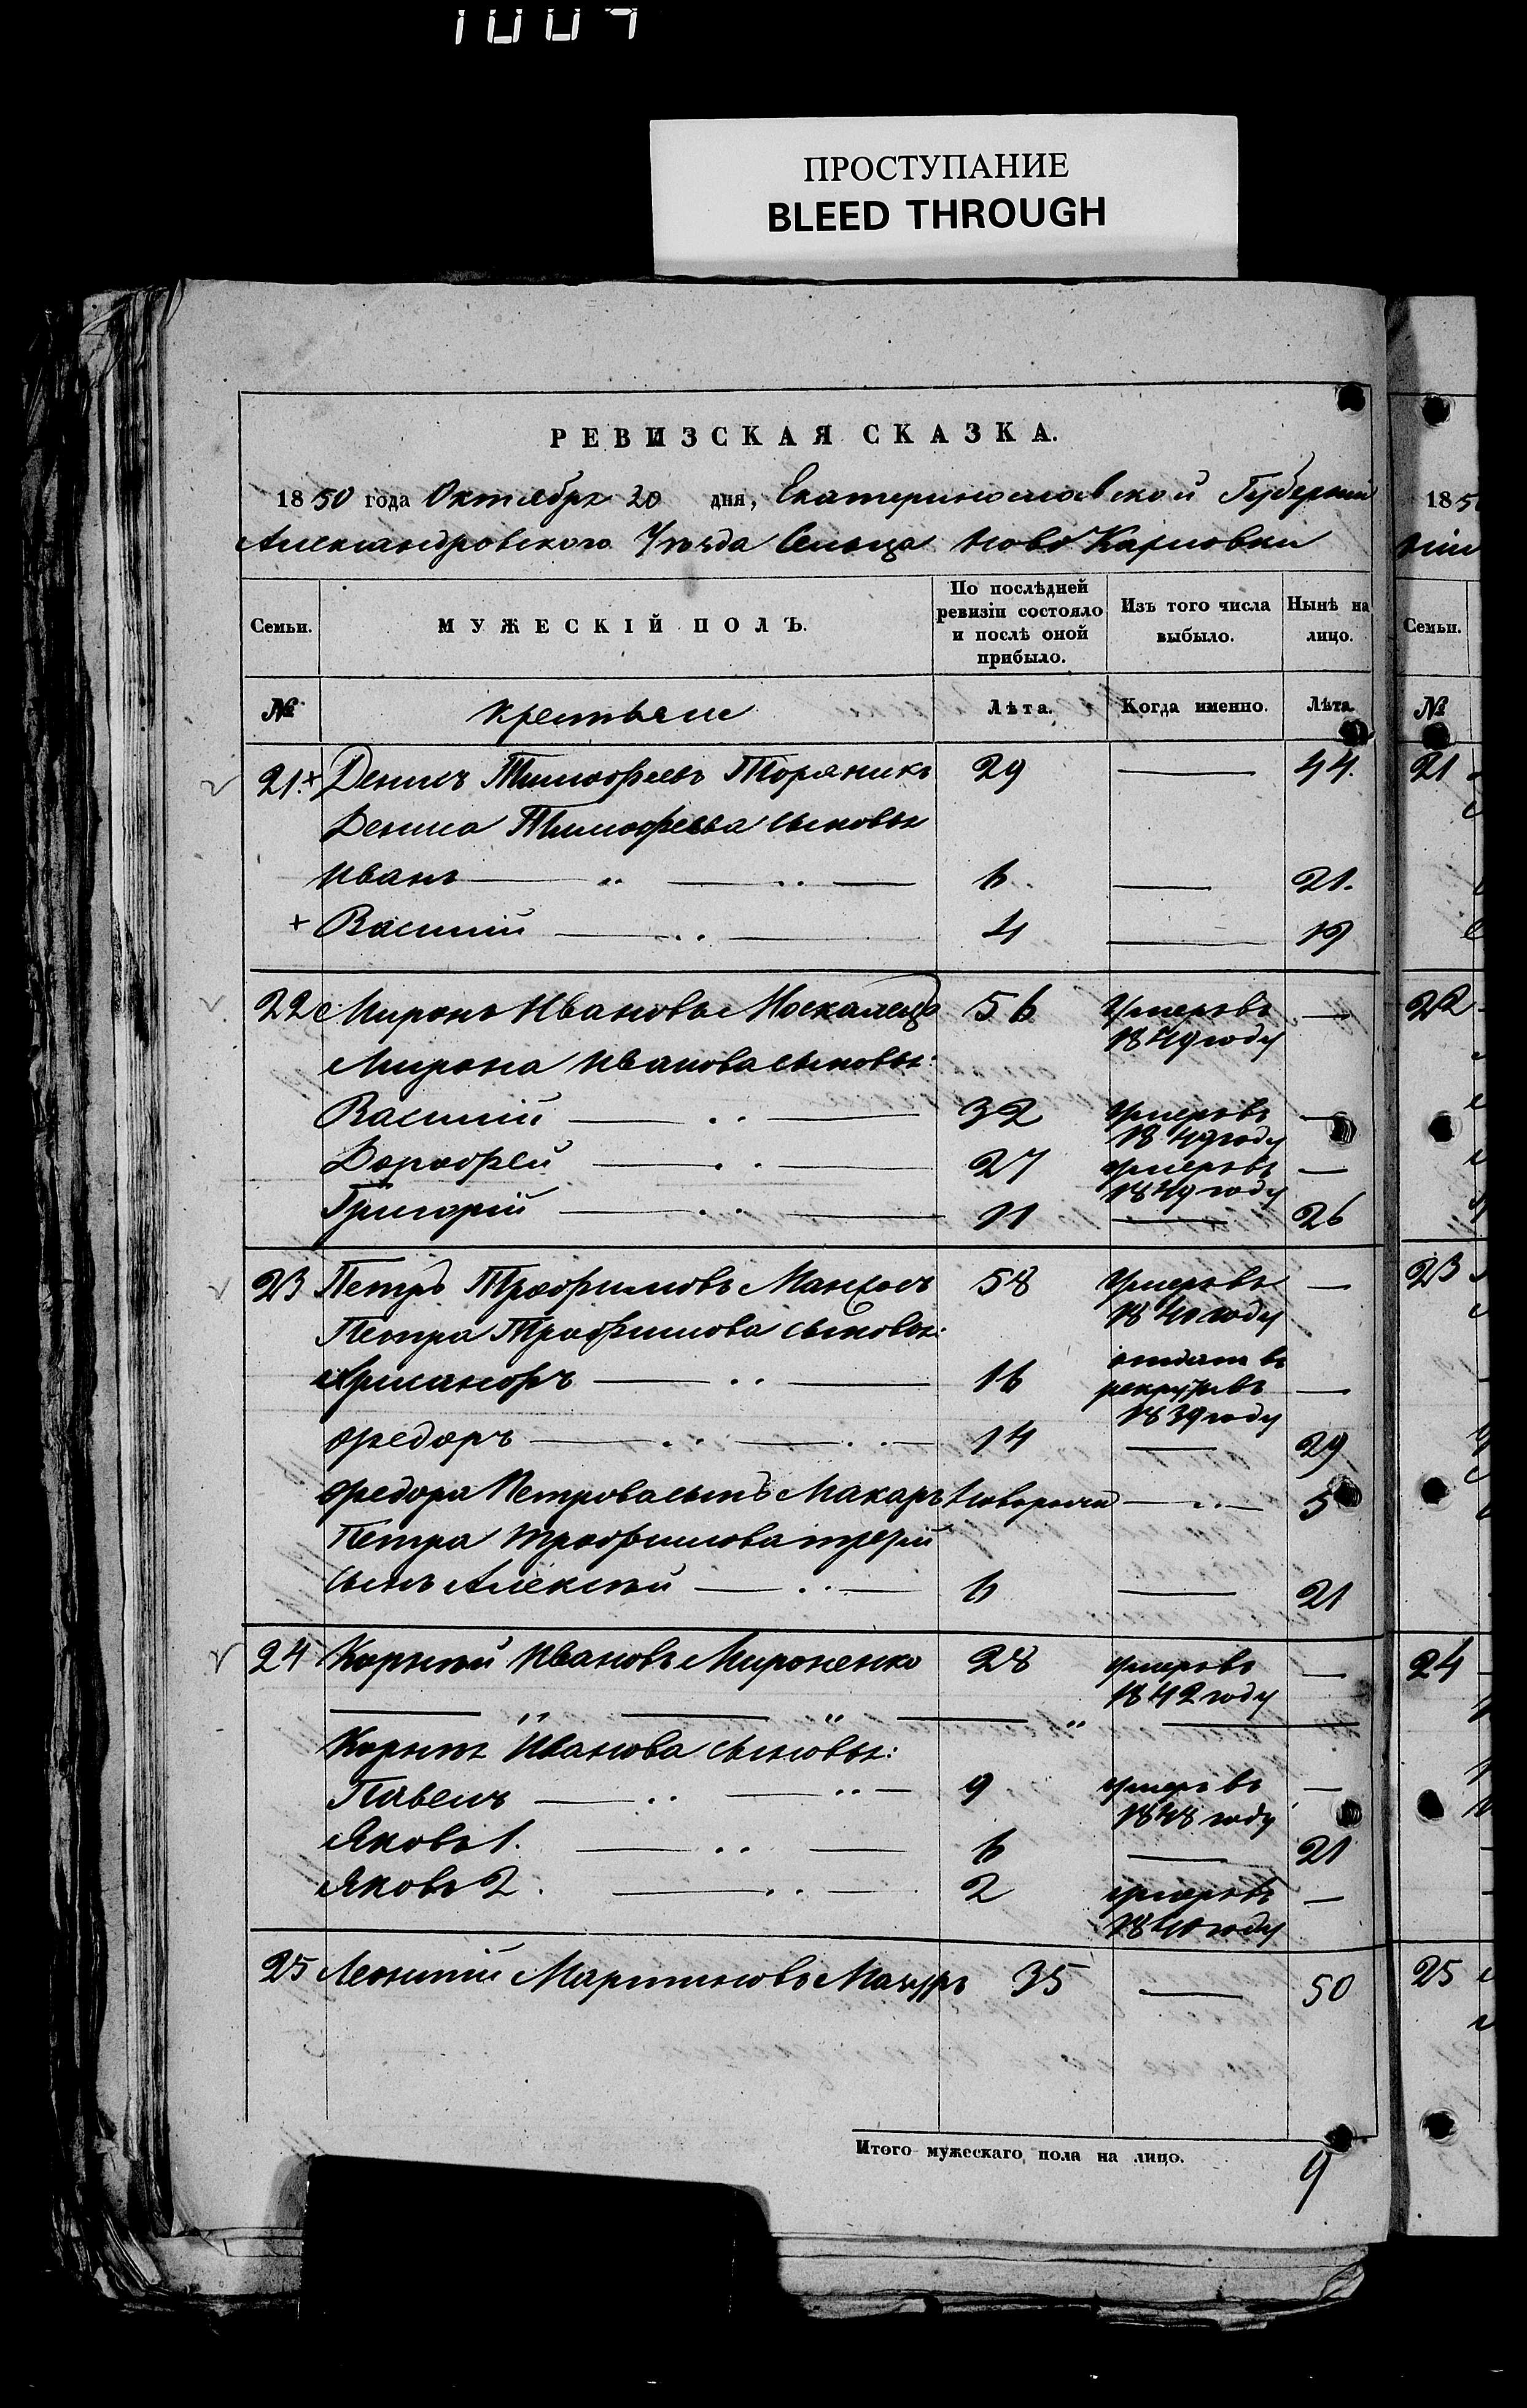 1004
ПРОСТУПАНИЕ
BLEED THROUGH
РЕВИЗСКАЯ СКАЗКА.
1850 года Октября 20 дня, Екатеринославской Губерніи
Александровскаго Уѣзда Сельца Ново Карловки
Семьи. МУЖЕСКІЙ ПОЛЪ. По послѣдней ревизіи состояло и послѣ оной прибыло. Изъ того числа выбыло. Нынѣ на лицо.
№ крестьяне Лѣта. Когда именно. Лѣта.
21. Денисъ Тимофеевъ Торяникъ 29 — 44.
Дениса Тимофеева сыновья
Иванъ 6. — 21.
Василій 4 — 19
22 Миронъ Ивановъ Москалецъ 56 Умеръ въ 1849 году —
Мирона Иванова сыновья:
Василій 32 умеръ въ 1849 году —
Дорофей 27 умеръ въ 1849 году —
Григорій 11 — 26
23 Петръ Трофимовъ Манхосъ 58 Умеръ въ 1840 году —
Петра Трофимова сыновья:
Хрисанфъ 16 отданъ въ рекруты въ 1839 году —
Федоръ 14 — 29
Федора Петрова сынъ Макаръ Новорожд — 5
Петра Трофимова третій
сынъ Алексѣй 6 — 21
24 Корнѣй Ивановъ Мироненко 28 умеръ въ 1842 году —
Корнѣя Иванова сыновья:
Павелъ 9 умеръ въ 1848 году —
Яковъ 1. 6 — 21
Яковъ 2. 2 умеръ въ 1840 году —
25 Леонтій Мартиновъ Мазуръ 35 — 50
Итого мужескаго пола на лицо. 9
185
Семьи.
№
21
22
23
24
25